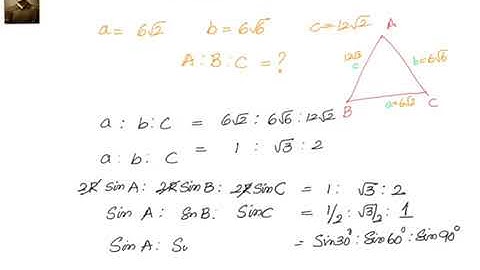 a = 6√2  b = 6√6  c = 12√2
A : B : C = ?
A
12√2
c
b=6√6
B
a=6√2
C
a : b : C = 6√2 : 6√6 : 12√2
a : b : C = 1 : √3 : 2
2R SinA : 2R SinB : 2R SinC = 1 : √3 : 2
Sin A : SnB : SinC = 1/2 : √3/2 : 1
Sin A : S = Sin30° : Sin60° : Sin90°